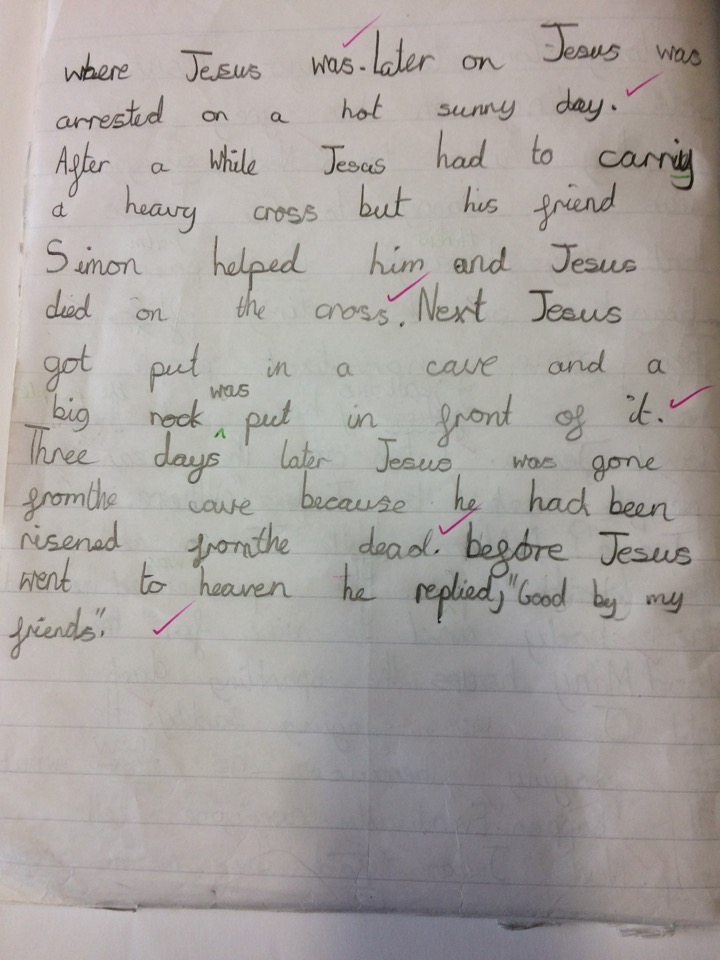 where Jesus was. Later on Jesus was
arrested on a hot sunny day.
After a while Jesus had to carry
a heavy cross but his friend
Simon helped him and Jesus
died on the cross. Next Jesus
got put in a cave and a
big rock was put in front of it.
Three days later Jesus was gone
fromthe cave because he had been
risened fromthe dead. before Jesus
went to heaven he replied, "Good by my
friends".